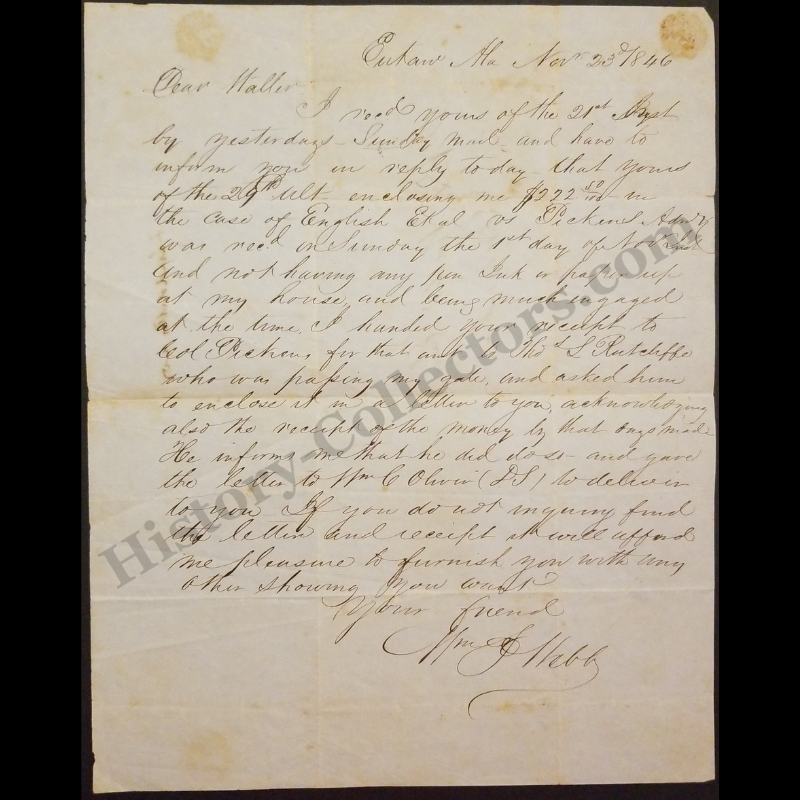 Eutaw Ala Nov 23d 1846
Dear Waller
I recd yours of the 21st Inst
by yesterdays - Sunday mail - and have to
inform you in reply to day - that yours
of the 29th ult - enclosing me $222 50/100 - in
the case of English Et al vs Pickens Admr
was recd on Sunday the 1st day of Nov
and not having any pen Ink or paper up
at my house, and being much engaged
at the time, I handed your receipt to
Col Pickens for that amt to Thos S Ratcliffe
who was passing my gate, and asked him
to enclose it in a letter to you, acknowledging
also the receipt of the money by that
He informs me that he did so - and gave
the letter to Wm C Oliver (DS) to deliver
to you If you do not inquiry find
the letter and receipt it will afford
me pleasure to furnish you with any
other showing you want
Your friend
Wm Webb
History-Collectors.com